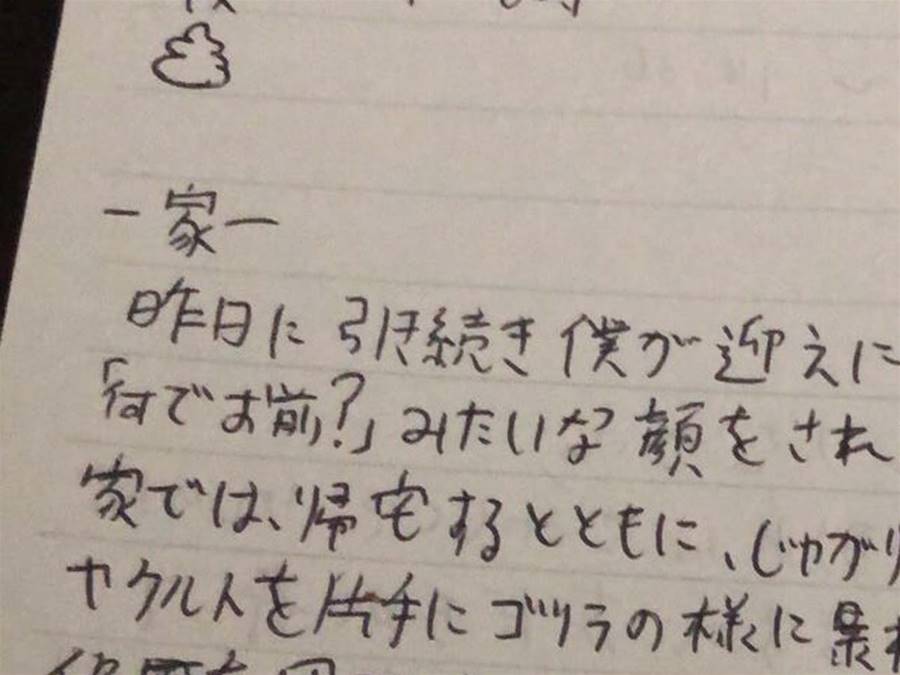 －家－
昨日に引き続き僕が迎えに
「何でお前？」みたいな顔をされ
家では、帰宅するとともに、じゃがり
ヤクルトを片手にゴツラの様に暴れ